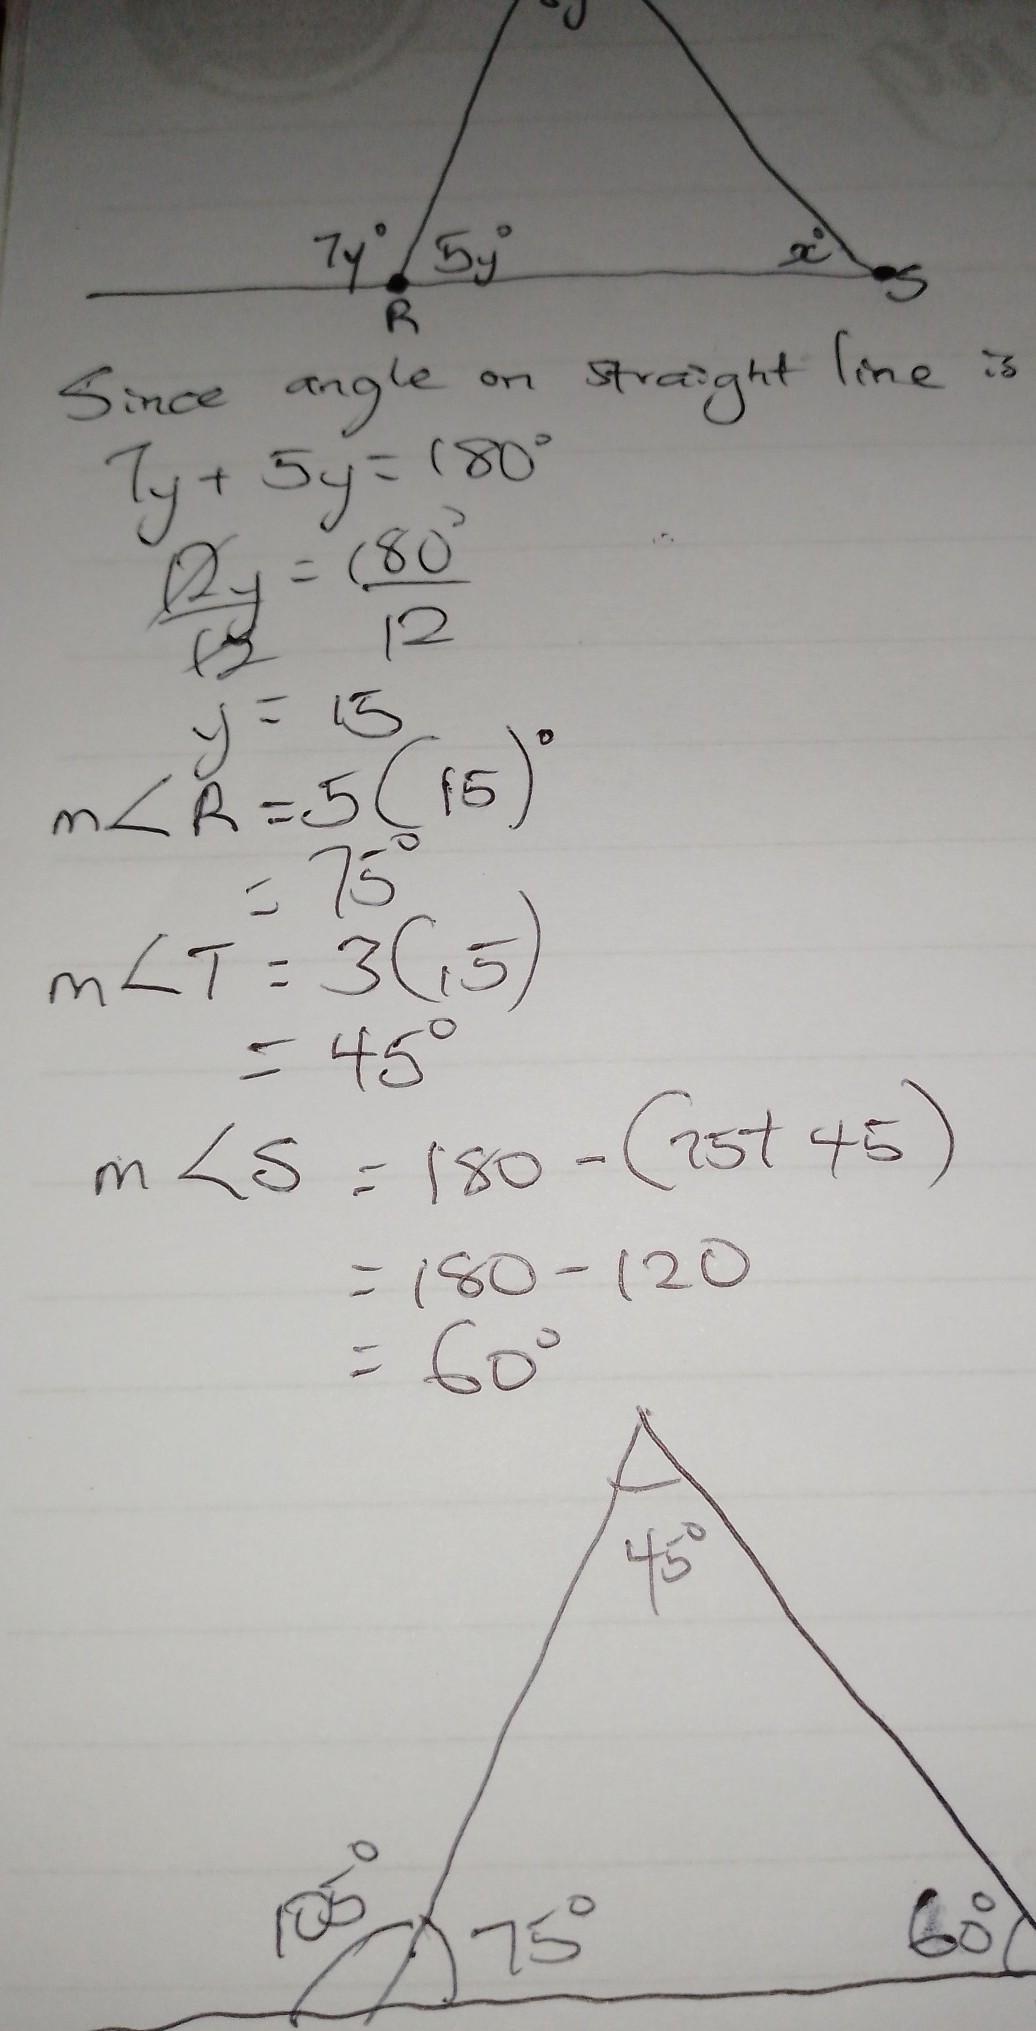 7y° 5y° x°
R S
Since angle on straight line is
7y + 5y = 180°
12y = 180°
12 12
y = 15
m∠R = 5(15)°
= 75°
m∠T = 3(15)
= 45°
m∠S = 180 - (75 + 45)
= 180 - 120
= 60°
45°
105° 75° 60°